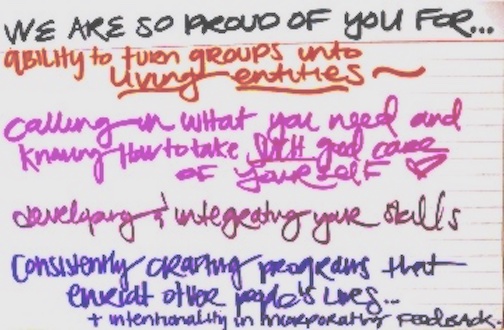 WE ARE SO PROUD OF YOU FOR...
ability to turn groups into
living entities
calling in what you need and
knowing how to take such good care
of yourself ♡
developing & integrating your skills
consistently crafting programs that
enrich other people's lives...
+ intentionality in incorporating FEEDBACK.